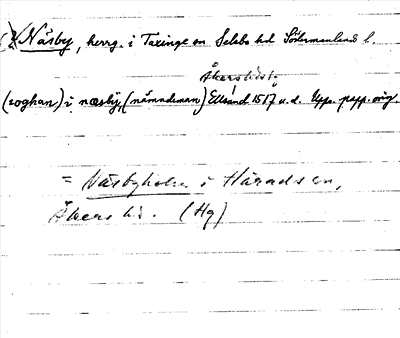 Näsby, herrg. i Taxinge sn Selebo hd Södermanlands l.
Åkers hds ty
(roghan) i næsby (nämndeman) Ellsund 1517 u.d. Upps. papp. orig.
= Näsbyholm i Härads sn,
Åkers hd. (Hg)